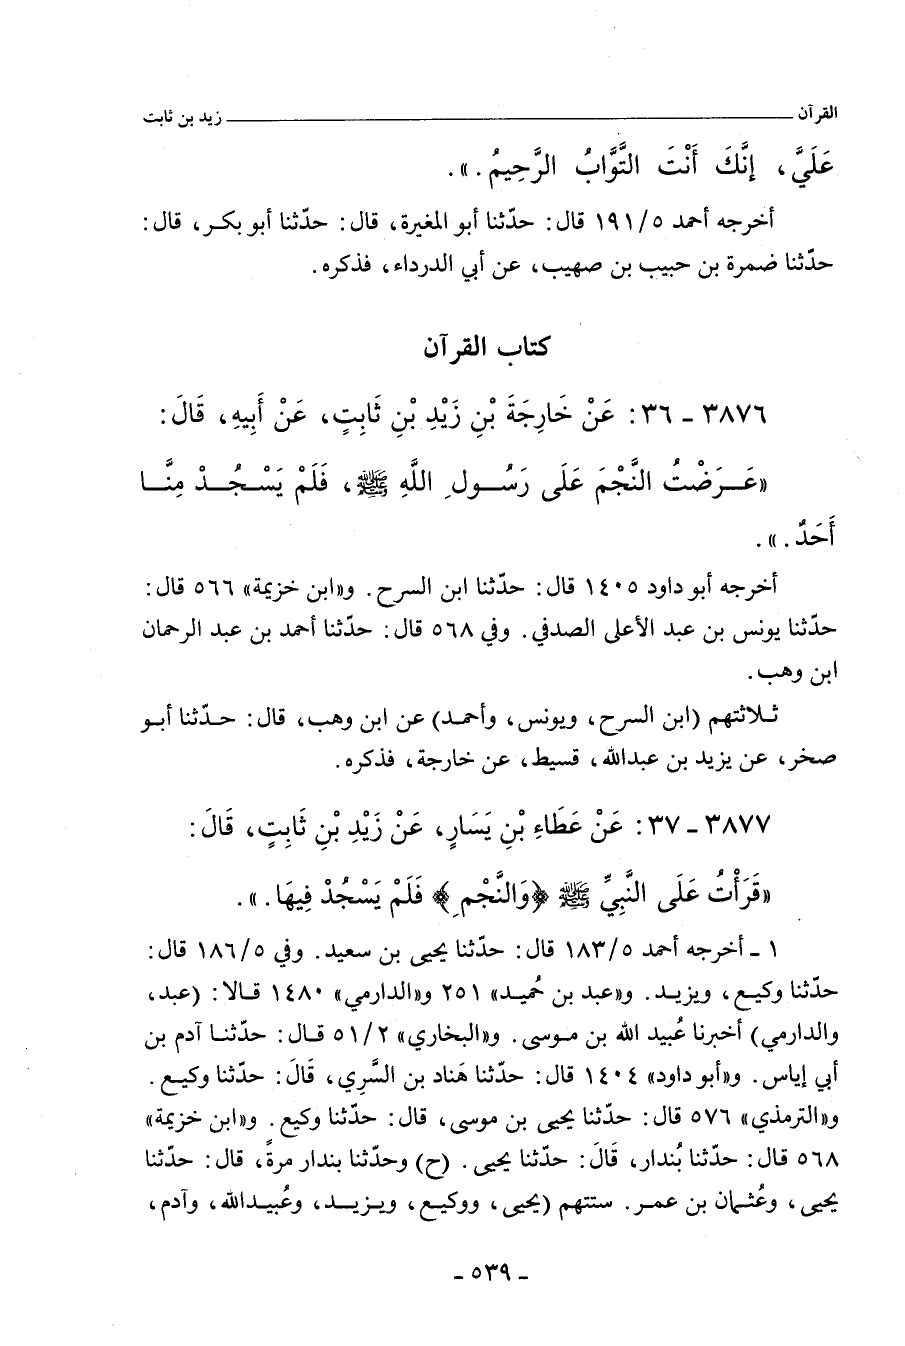 القرآن ـــــــــــــــــــــــــــــــــــــــــــــــــ زيد بن ثابت
عَلَيَّ، إِنَّكَ أَنْتَ التَّوَّابُ الرَّحِيمُ.».
أخرجه أحمد ١٩١/٥ قال: حدّثنا أبو المغيرة، قال: حدّثنا أبو بكر، قال:
حدّثنا ضمرة بن حبيب بن صهيب، عن أبي الدرداء، فذكره.
كتاب القرآن
٣٨٧٦ ـ ٣٦: عَنْ خَارِجَةَ بْنِ زَيْدِ بْنِ ثَابِتٍ، عَنْ أَبِيهِ، قَالَ:
«عَرَضْتُ النَّجْمَ عَلَى رَسُولِ اللَّهِ ﷺ، فَلَمْ يَسْجُدْ مِنَّا
أَحَدٌ.».
أخرجه أبو داود ١٤٠٥ قال: حدّثنا ابن السرح. و«ابن خزيمة» ٥٦٦ قال:
حدّثنا يونس بن عبد الأعلى الصدفي. وفي ٥٦٨ قال: حدّثنا أحمد بن عبد الرحمان
ابن وهب.
ثلاثتهم (ابن السرح، ويونس، وأحمد) عن ابن وهب، قال: حدّثنا أبو
صخر، عن يزيد بن عبدالله، قسيط، عن خارجة، فذكره.
٣٨٧٧ ـ ٣٧: عَنْ عَطَاءِ بْنِ يَسَارٍ، عَنْ زَيْدِ بْنِ ثَابِتٍ، قَالَ:
«قَرَأْتُ عَلَى النَّبِيِّ ﷺ ﴿وَالنَّجْمِ﴾ فَلَمْ يَسْجُدْ فِيهَا.».
١ ـ أخرجه أحمد ١٨٣/٥ قال: حدّثنا يحيى بن سعيد. وفي ١٨٦/٥ قال:
حدّثنا وكيع، ويزيد. و«عبد بن حُميد» ٢٥١ و«الدارمي» ١٤٨٠ قالا: (عبد،
والدارمي) أخبرنا عُبيد الله بن موسى. و«البخاري» ٥١/٢ قال: حدّثنا آدم بن
أبي إياس. و«أبو داود» ١٤٠٤ قال: حدّثنا هَناد بن السَّري، قَالَ: حدّثنا وكيع.
و«الترمذي» ٥٧٦ قال: حدّثنا يحيى بن موسى، قال: حدّثنا وكيع. و«ابن خزيمة»
٥٦٨ قال: حدّثنا بُندار، قَالَ: حدّثنا يحيى. (ح) وحدّثنا بندار مرةً، قال: حدّثنا
يحيى، وعُثمان بن عمر. ستتهم (يحيى، ووكيع، ويزيد، وعُبيدالله، وآدم،
ـ ٥٣٩ ـ